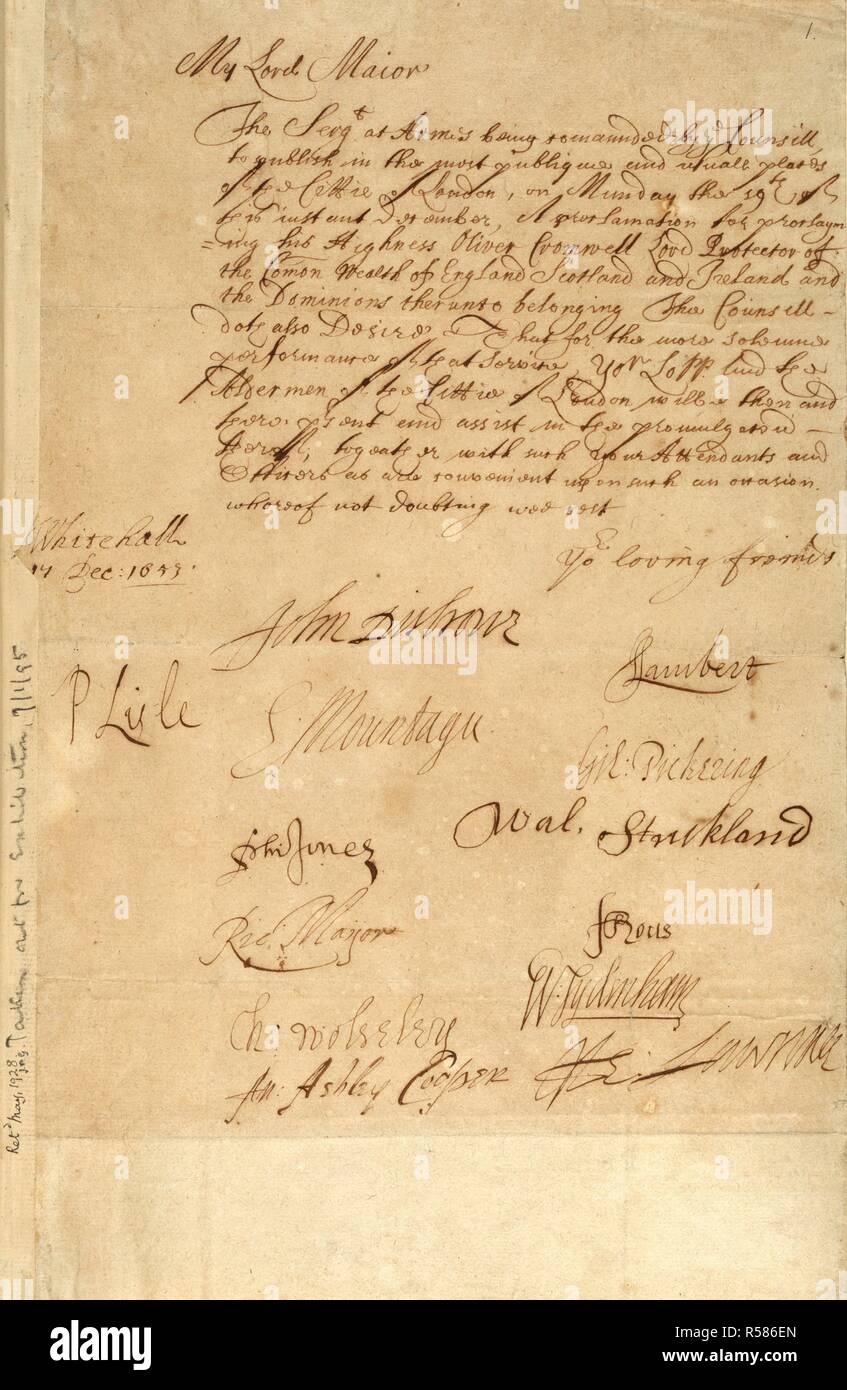 1.
My Lord Maior
The Serg.t at Armes being com̄aunded by y.e Counsill,
to publish in the most publique and usuall places
of the Cittie of London, on Munday the 19th of
this instant December, A Proclamation for proclaym
=ing his Highness Oliver Cromwell Lord Protector of
the Com̄on Wealth of England Scotland and Ireland and
the Dominions therunto belonging The Counsill -
doth also Desire That for the more solemne
performance of that service, Yo.r Lo.pp and the
Aldermen of the Cittie of London wilbe then and
there p̱sent and assist in the promulgac̄oū -
therof, togeather with such your Attendants and
Officers as are convenient upon such an occasion.
whereof not doubting wee rest
Whitehall
17 Dec: 1653.
Yo.r loving freinds
John Disbrowe
Lambert
P Lisle
E. Mountagu
Gil: Pickering
Wal. Strickland
Jones
Ric: Maijor
FRous
W: Sydenham
Ch: Wolseley
An: Ashley Cooper
He: Lawrence
Ret.d May, 1928
Taken out for Exhibition,
alamy
Image ID: R586EN
www.alamy.com